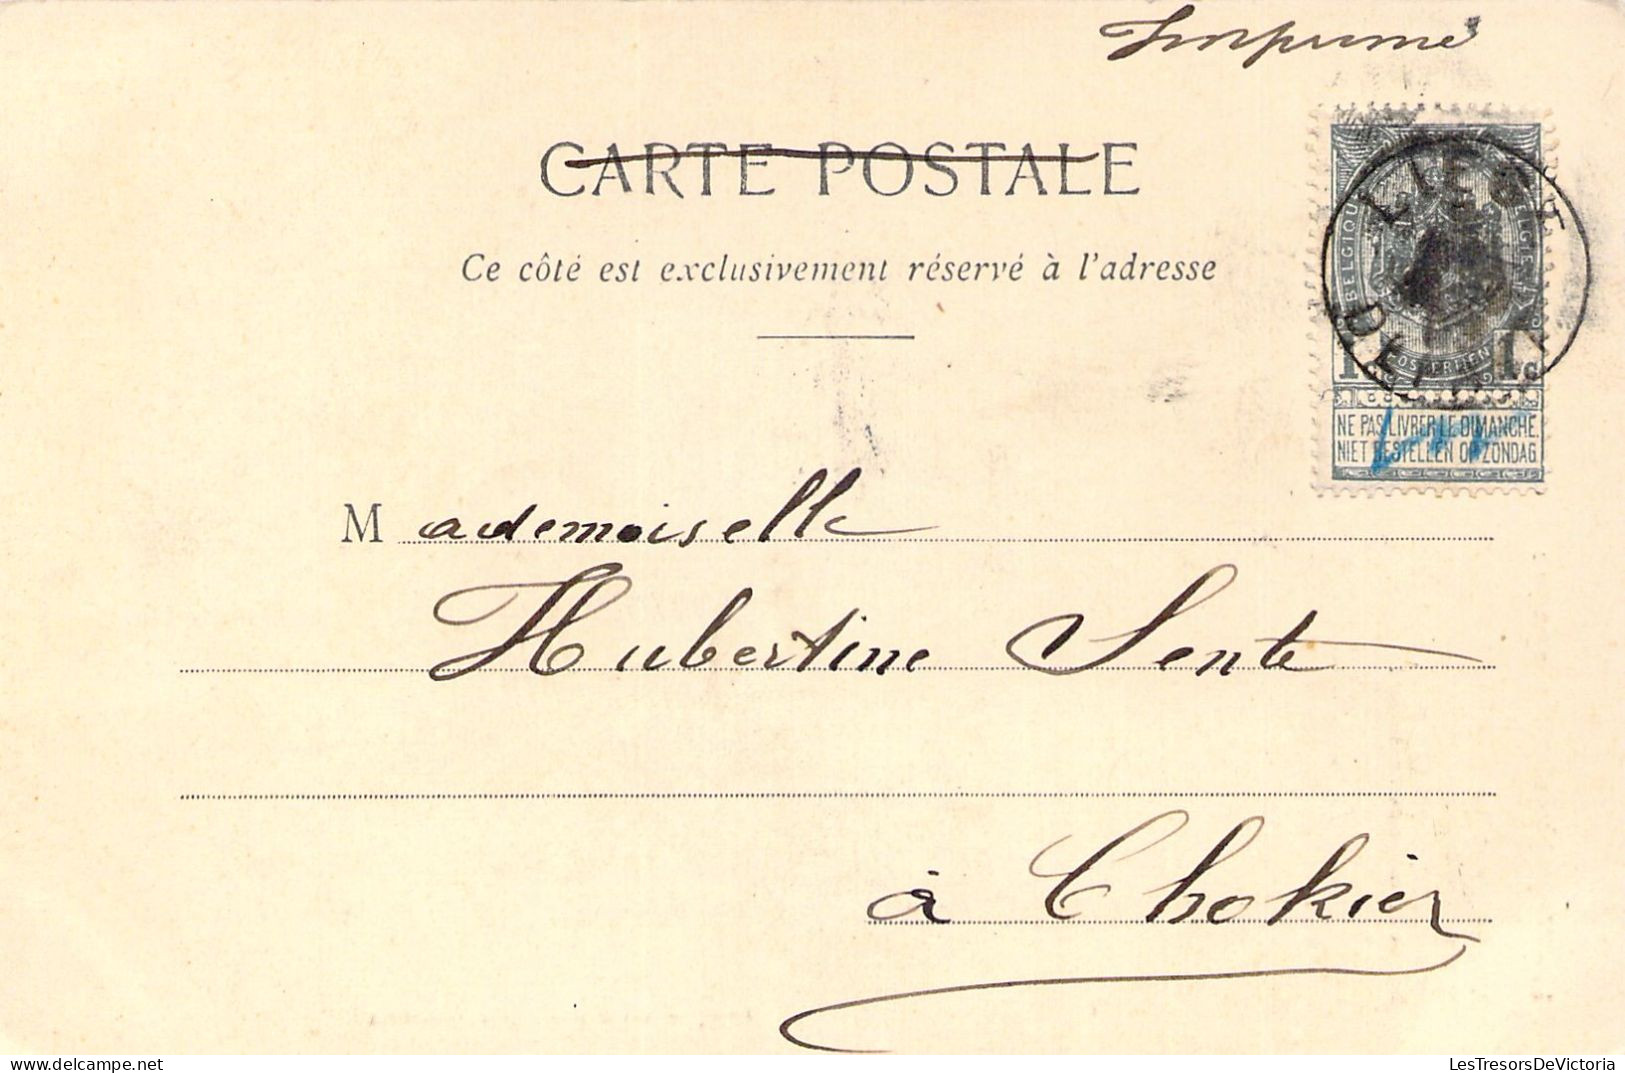 Imprimé
CARTE POSTALE
Ce côté est exclusivement réservé à l'adresse
BELGIQUE
LIEGE
DEPART
1 1c
NE PAS LIVRER LE DIMANCHE.
NIET BESTELLEN OP ZONDAG
Mademoiselle
Hubertine Sente
à Chokier
LesTresorsDeVictoria